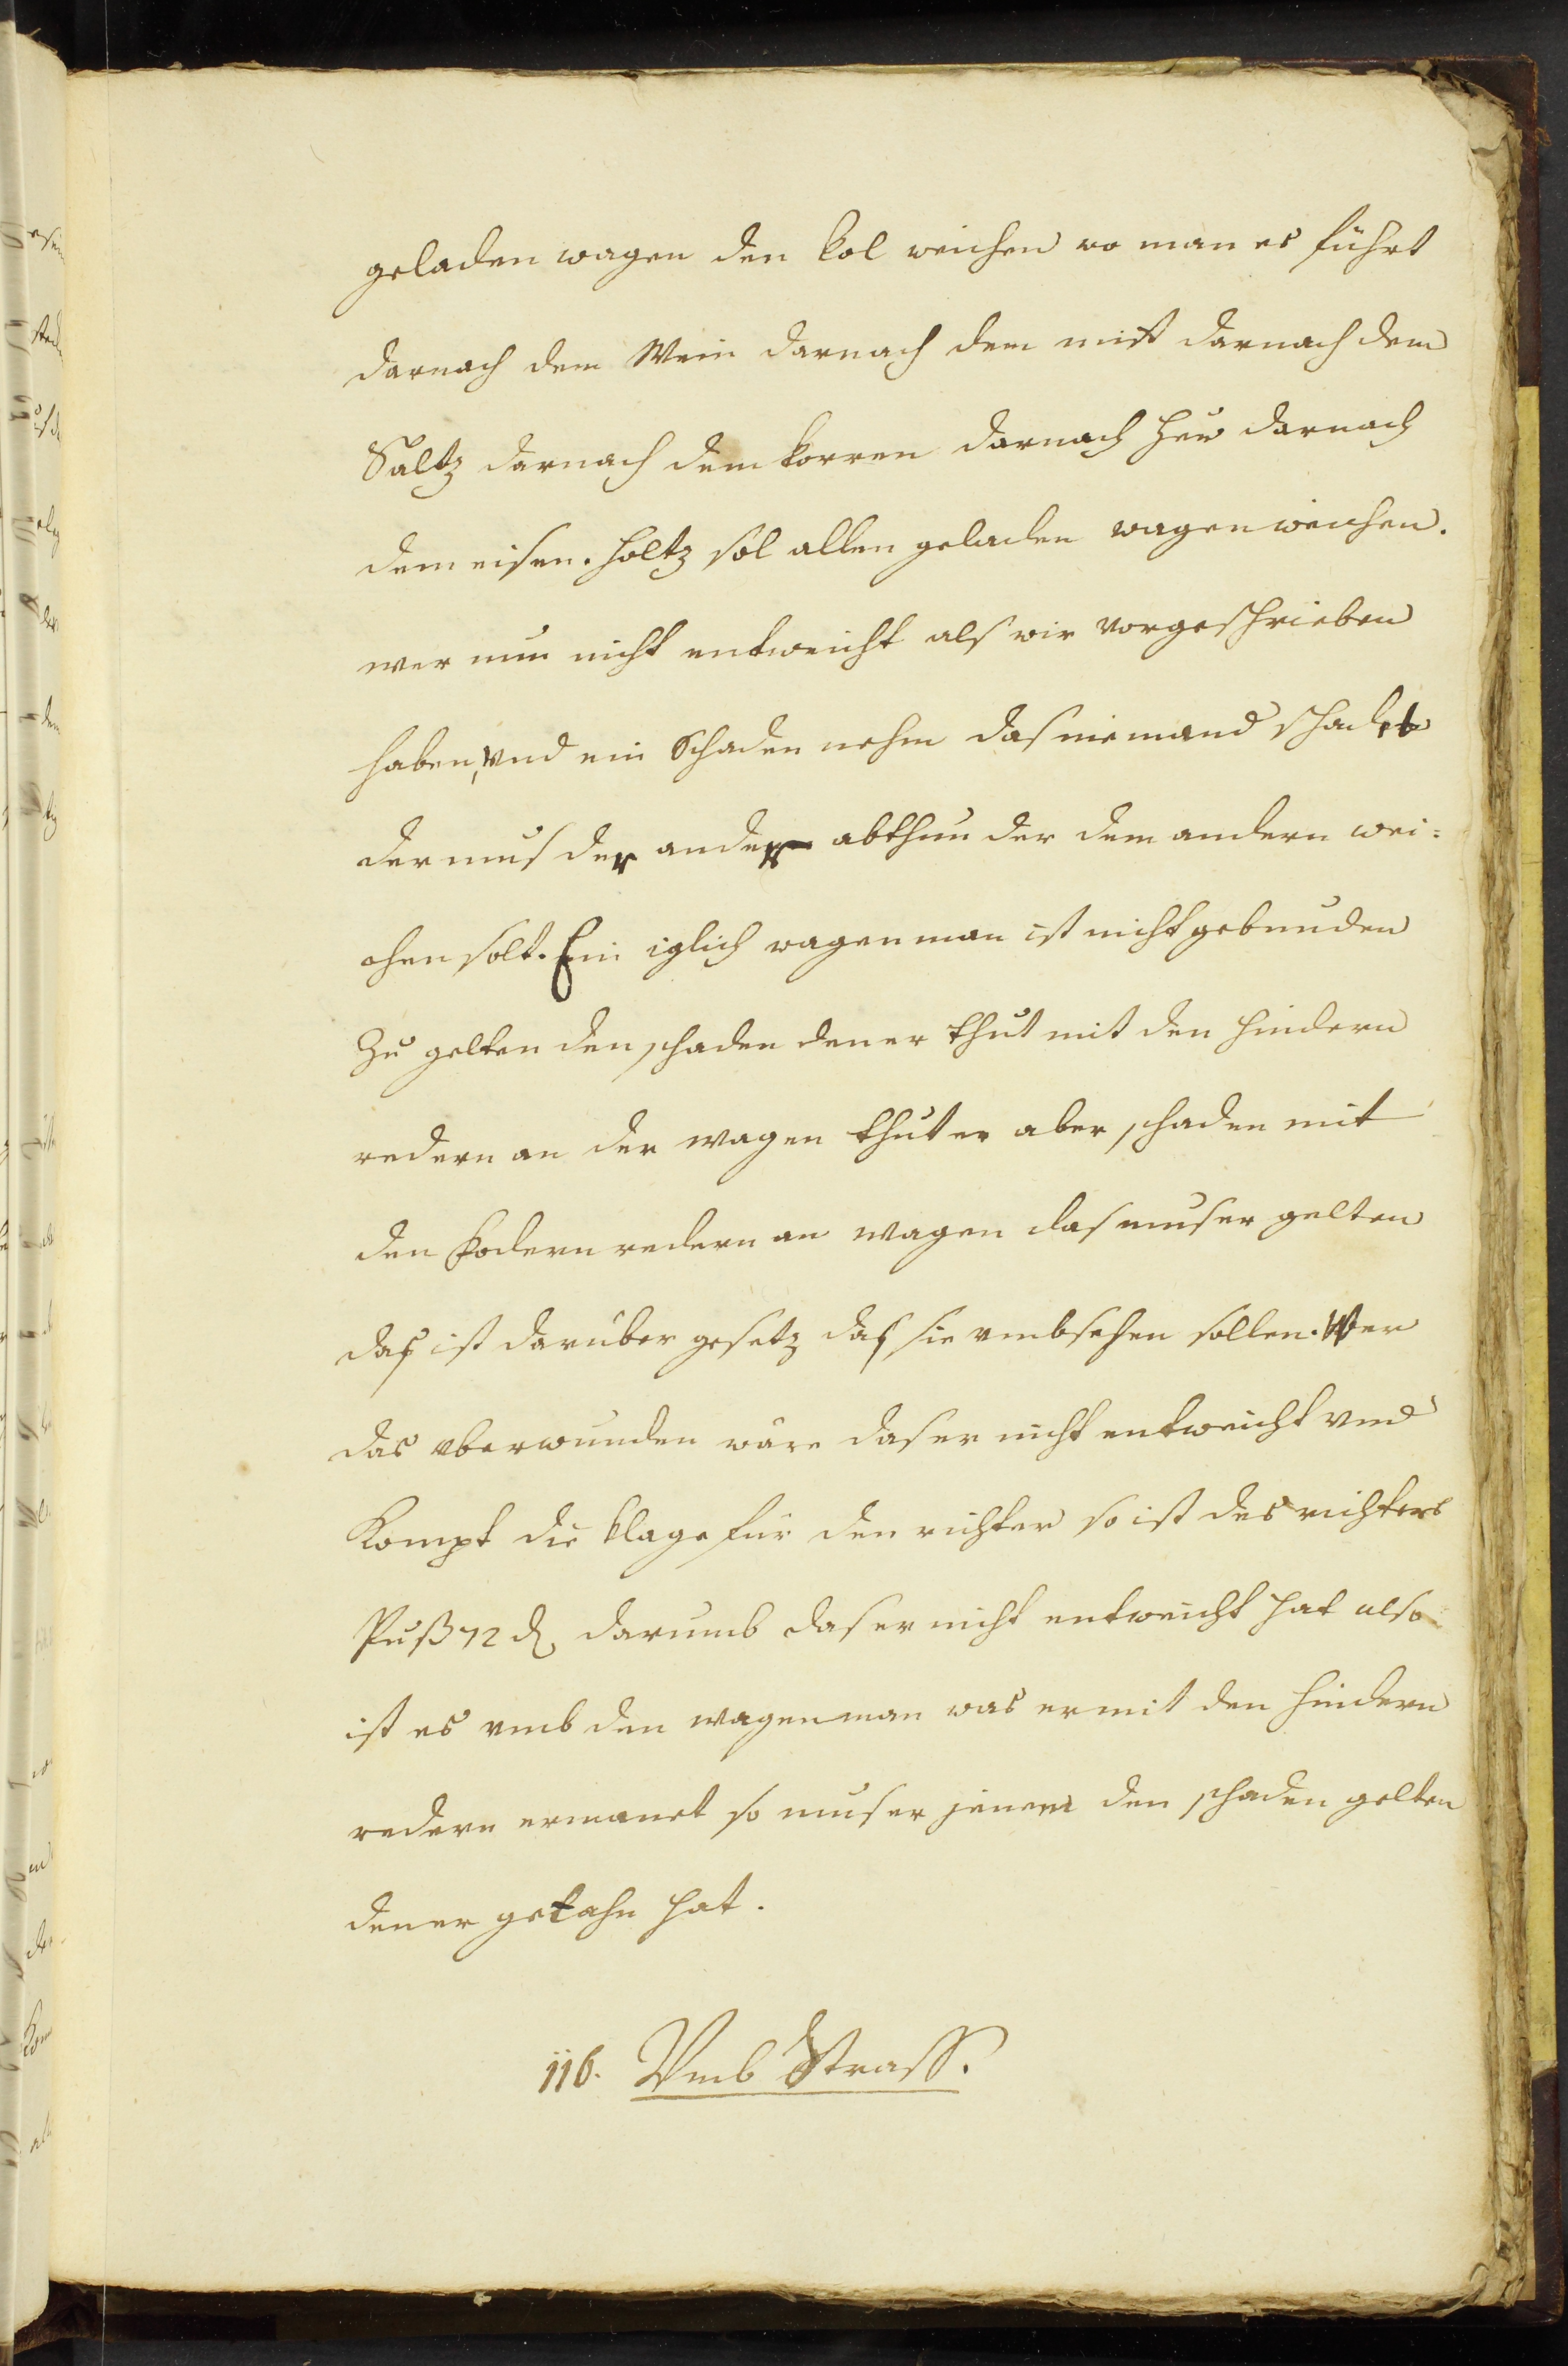 geladen wagen den kol weichen wo man es führt
darnach dem Wein darnach dem mist darnach dem
Saltz darnach dem korren darnach heu darnach
dem eisen. Holtz sol allen geladen wagen weichen.
wer nun nicht entweicht als wir vorgeschrieben
haben, vnd ein Schaden nehm das niemand schadet
der mus der ander abthun der dem andern wei=
chen solt. Ein iglich wagen man ist nicht gebunden
Zu gelten den schaden den er thut mit den hindern
redern an der wagen thut er aber schaden mit
den fodern redern an wagen das mus er gelten
das ist darüber gesetz das sie vmbsehen sollen. Wer
das vberwunden wäre das er nicht entweicht vnd
Kompt die klage für den richter so ist des richters
Puß 72 d darumb das er nicht entweicht hat also
ist es vmb den wagen man was er mit den hindern
redern ermanet so mus er jenem den schaden gelten
den er getahn hat.
116. Vmb Strass.